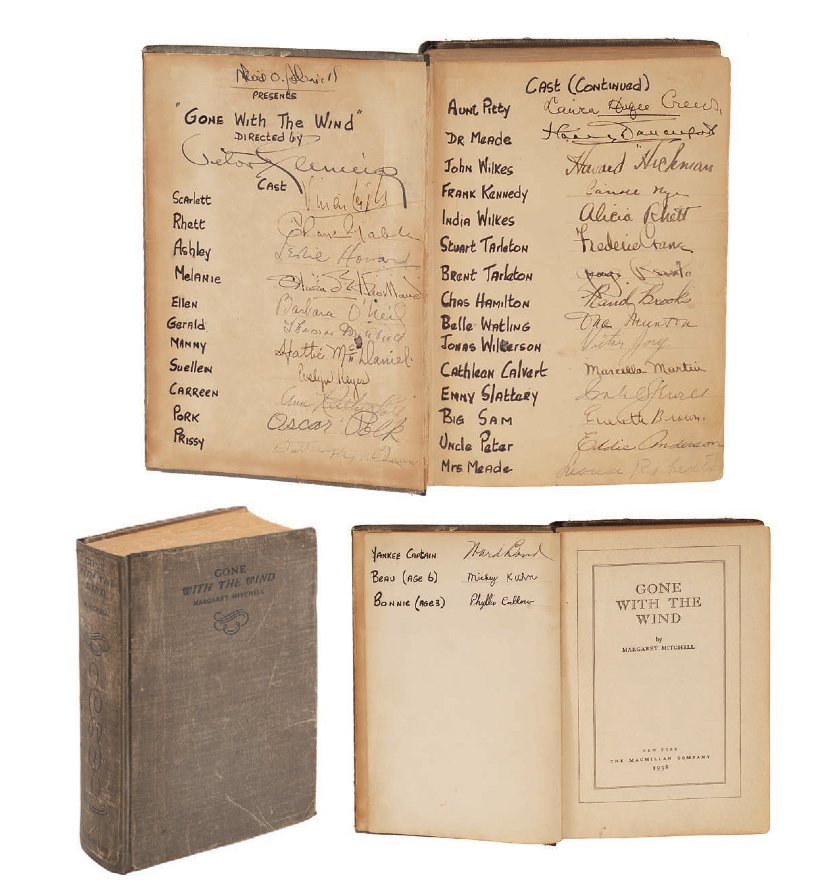 David O. Selznick
PRESENTS
"GONE WITH THE WIND"
DIRECTED by
Victor Fleming
CAST
Scarlett Vivien Leigh
Rhett Clark Gable
Ashley Leslie Howard
Melanie Olivia de Havilland
Ellen Barbara O'Neil
Gerald Thomas Mitchell
MAMMY Hattie McDaniel
Suellen Evelyn Keyes
CARREEN Ann Rutherford
PORK Oscar Polk
PRISSY
CAST (CONTINUED)
AUNT PITTY Laura Hope Crews
DR MEADE Harry Davenport
JOHN WILKES Howard Hickman
FRANK KENNEDY
INDIA WILKES Alicia Rhett
STUART TARLETON Frederic Crane
BRENT TARLETON George
CHAS HAMILTON Rand Brooks
BELLE WATLING Ona Munson
JONAS WILKERSON Victor Jory
CATHLEEN CALVERT Marcella Martin
EMMY SLATTERY
BIG SAM Everett Brown
UNCLE PETER Eddie Anderson
MRS MEADE Leona Roberts
GONE
WITH THE WIND
MARGARET MITCHELL
GONE
WITH THE
WIND
MITCHELL
YANKEE CAPTAIN Ward Bond
BEAU (AGE 6) Mickey Kuhn
BONNIE (AGE 3) Phyllis Callow
GONE
WITH THE
WIND
by
MARGARET MITCHELL
NEW YORK
THE MACMILLAN COMPANY
1938